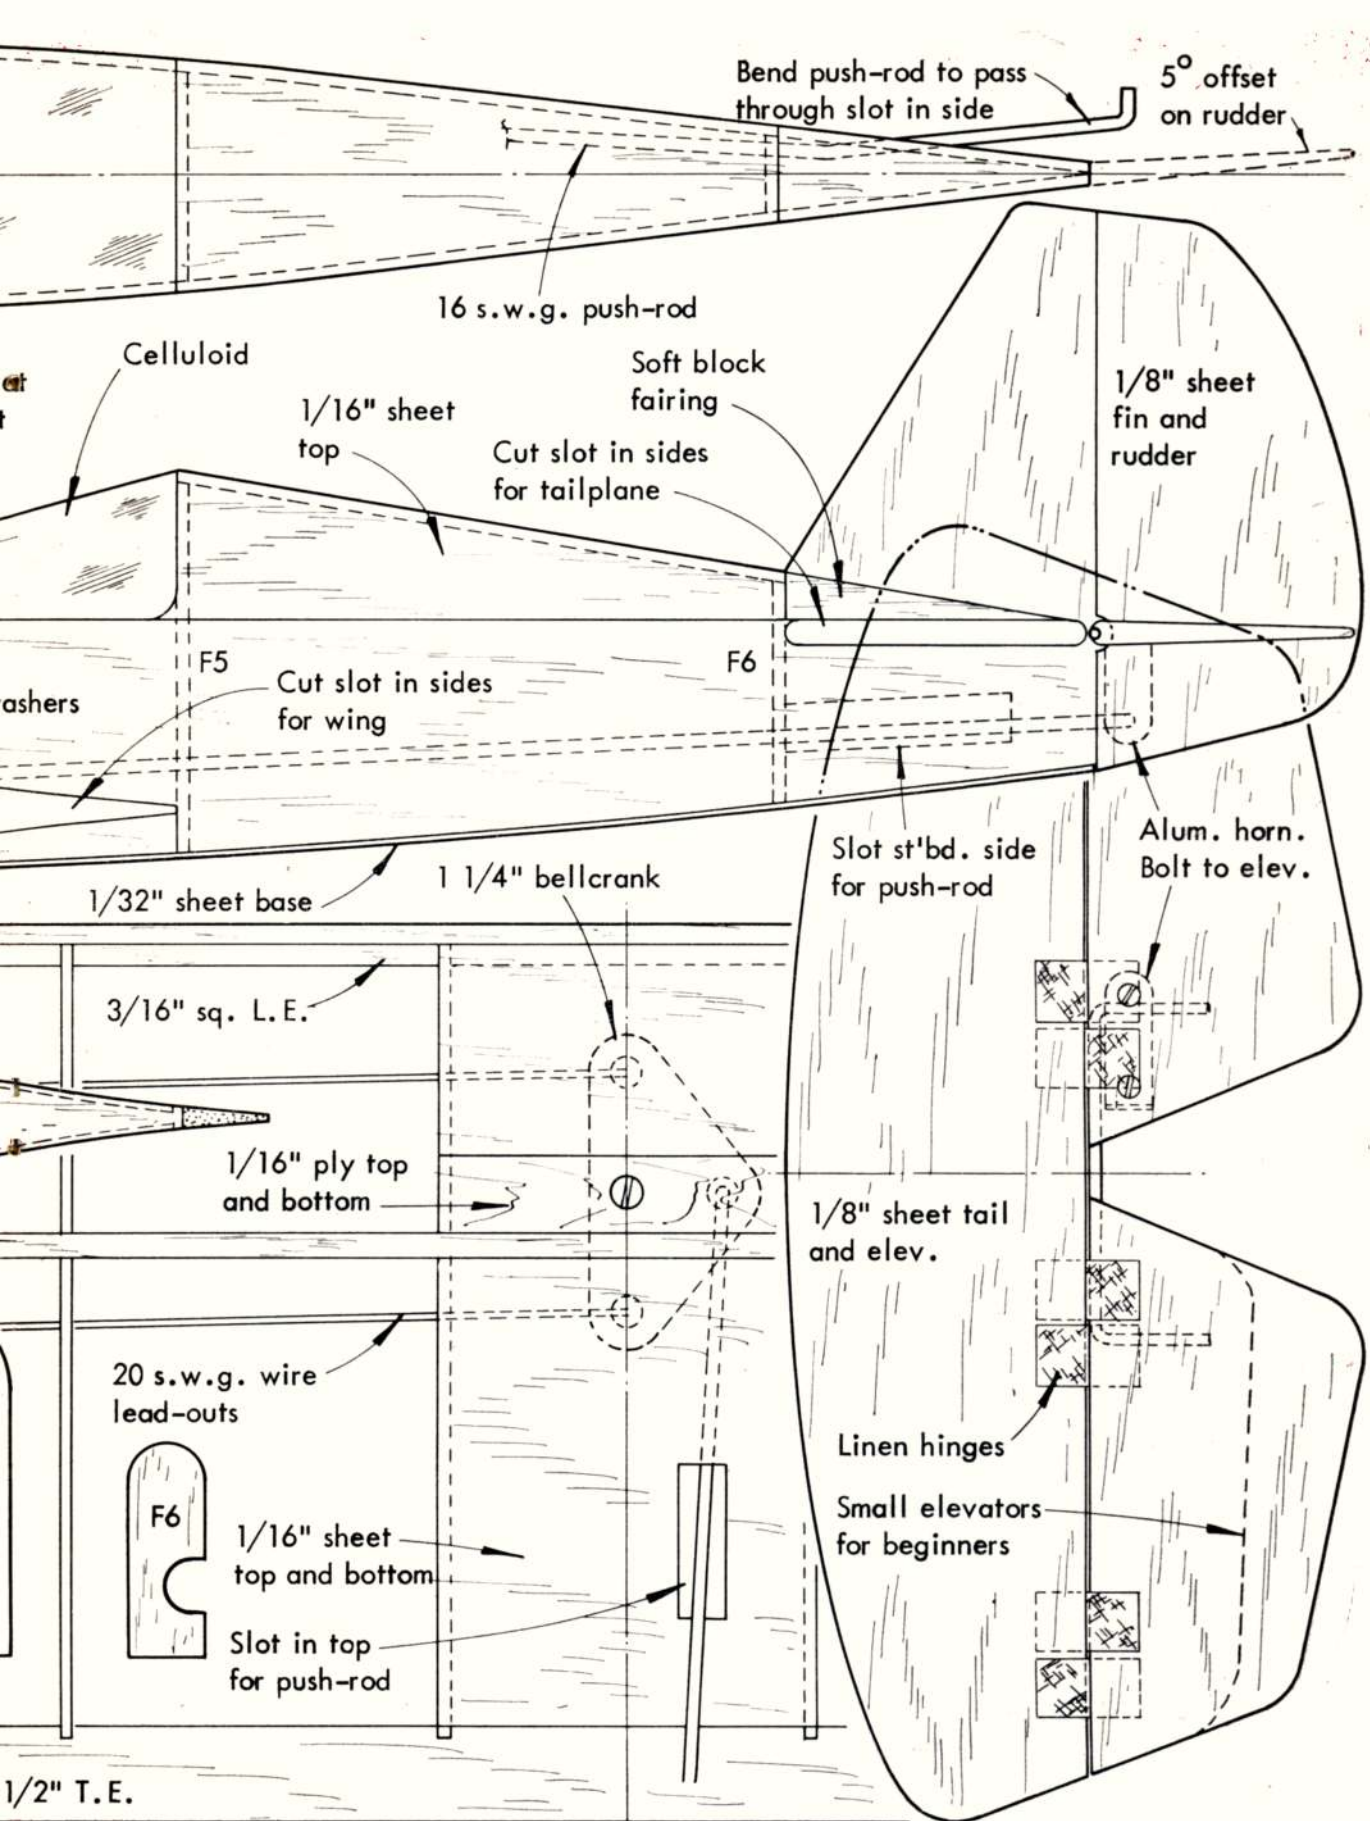 Bend push-rod to pass
through slot in side
5° offset
on rudder
16 s.w.g. push-rod
Celluloid
at
t
1/16" sheet
top
Soft block
fairing
Cut slot in sides
for tailplane
1/8" sheet
fin and
rudder
F5
F6
ashers
Cut slot in sides
for wing
Slot st'bd. side
for push-rod
Alum. horn.
Bolt to elev.
1/32" sheet base
1 1/4" bellcrank
3/16" sq. L.E.
1/16" ply top
and bottom
1/8" sheet tail
and elev.
20 s.w.g. wire
lead-outs
Linen hinges
F6
1/16" sheet
top and bottom
Small elevators
for beginners
Slot in top
for push-rod
1/2" T.E.